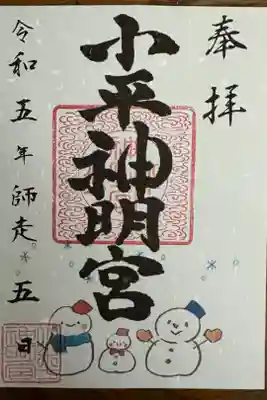 奉拝
小平神明宮
令和五年師走五日